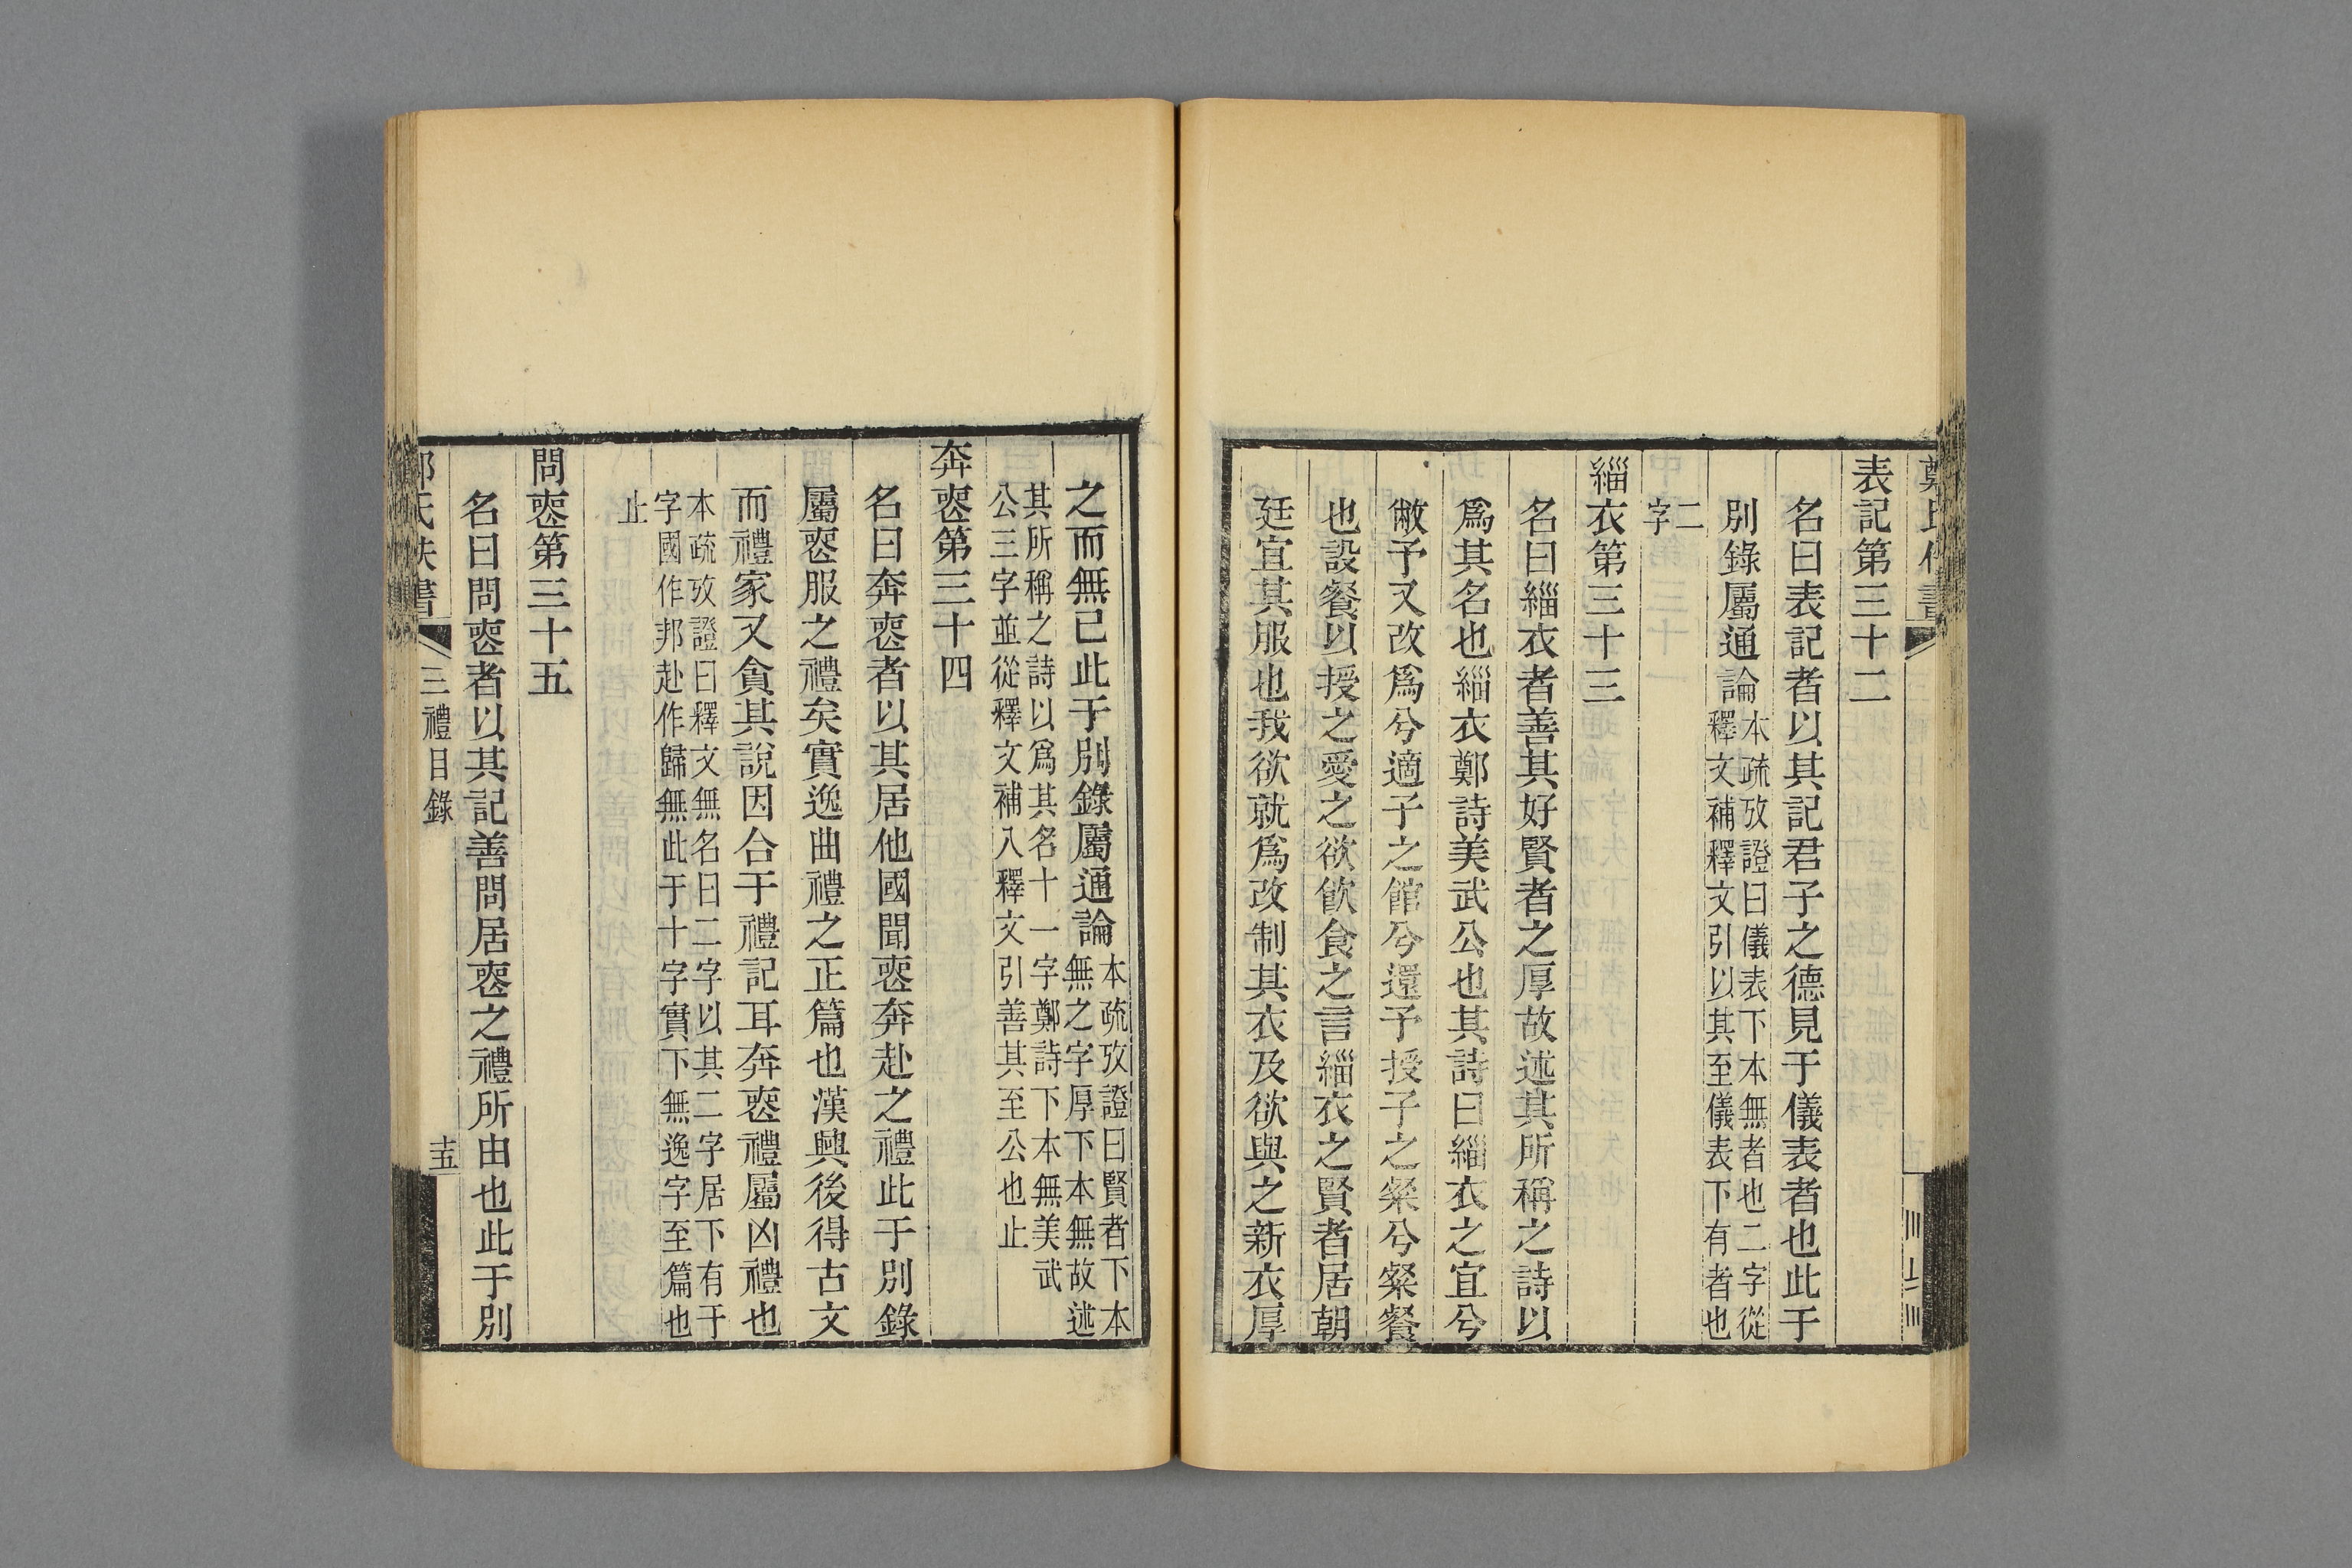 表記第三十二
名曰表記者以其記君子之德見于儀表者也此于
別錄屬通論
本疏攷證曰儀表下本無者也二字從
釋文補釋文引以其至儀表下有者也
二
字
緇衣第三十三
名曰緇衣者善其好賢者之厚故述其所稱之詩以
爲其名也緇衣鄭詩美武公也其詩曰緇衣之宜兮
敝予又改爲兮適子之館兮還予授子之粲兮粲餐
也設餐以授之愛之欲飮食之言緇衣之賢者居朝
廷宜其服也我欲就爲改制其衣及欲與之新衣厚
之而無已此于別錄屬通論
本疏攷證曰賢者下本
無之字厚下本無故述
其所稱之詩以爲其名十一字鄭詩下本無美武
公三字並從釋文補入釋文引善其至公也止
奔䘮第三十四
名曰奔䘮者以其居他國聞䘮奔赴之禮此于別錄
屬䘮服之禮矣實逸曲禮之正篇也漢興後得古文
而禮家又貪其說因合于禮記耳奔䘮禮屬凶禮也
本疏攷證曰釋文無名曰二字以其二字居下有于
字國作邦赴作歸無此于十字實下無逸字至篇也
止
問䘮第三十五
名曰問䘮者以其記善問居䘮之禮所由也此于別
三禮目錄
十五